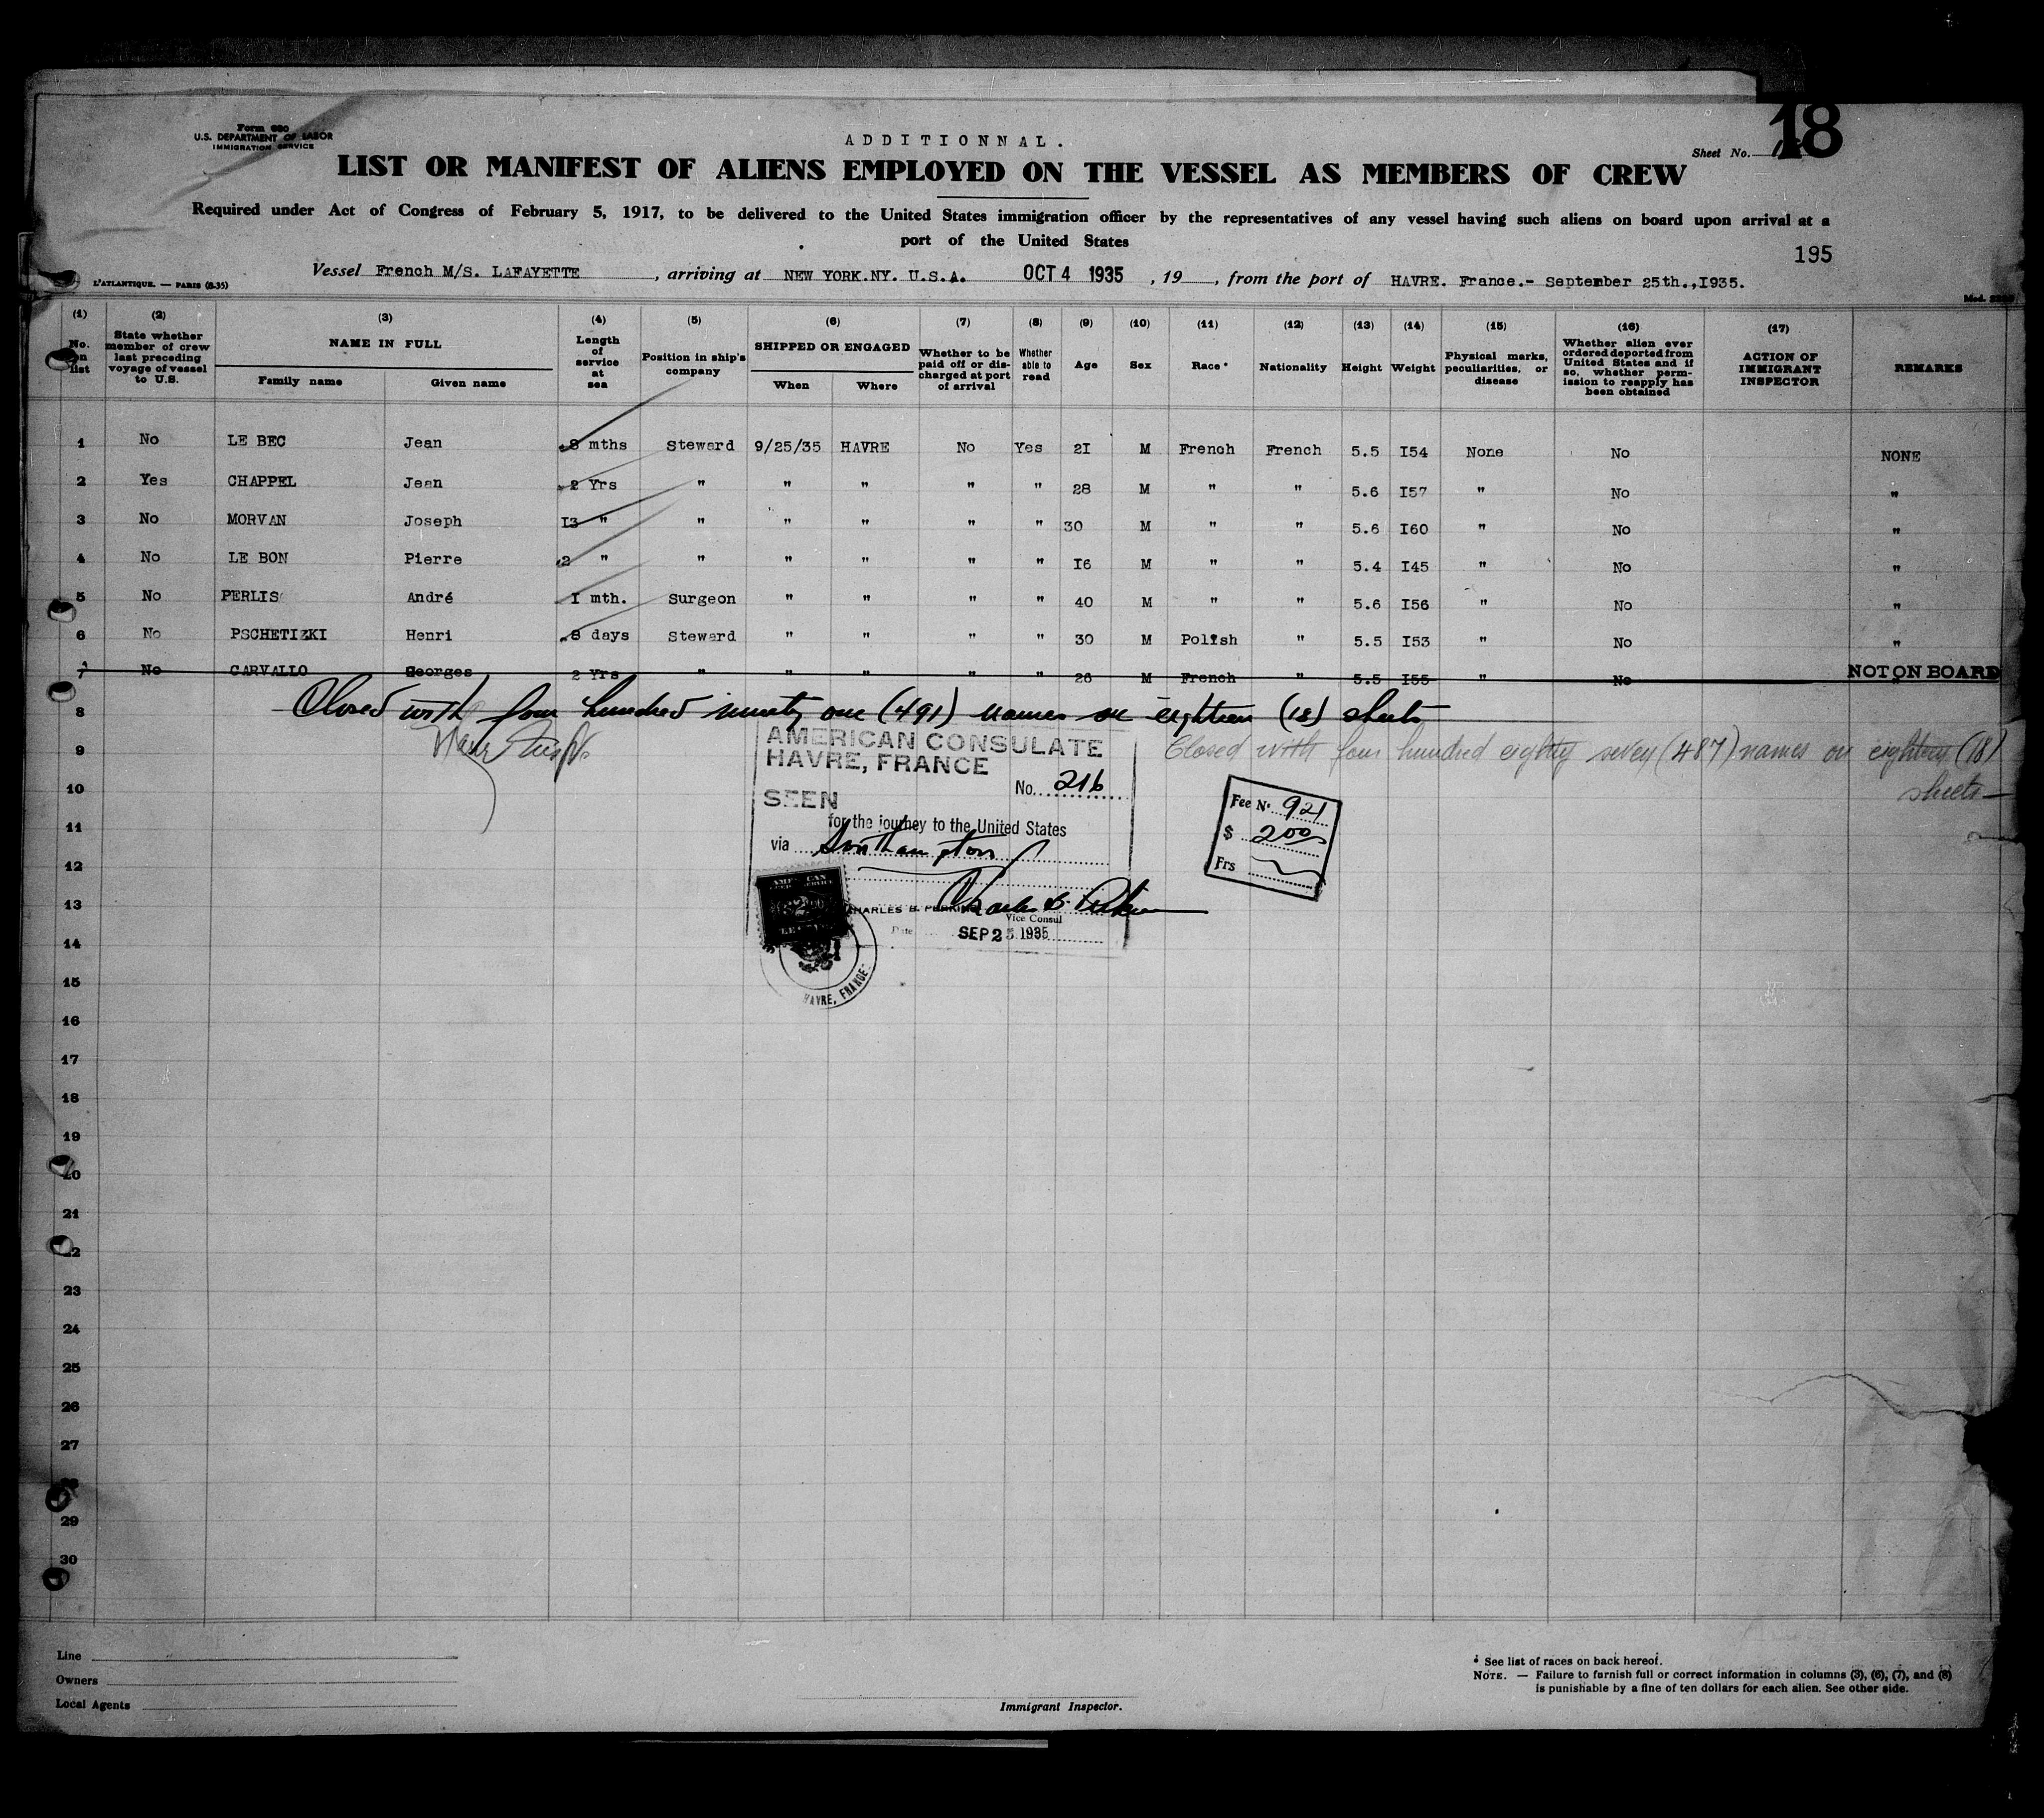 Form 680
U.S. DEPARTMENT OF LABOR
IMMIGRATION SERVICE
ADDITIONNAL.
Sheet No. 18
LIST OR MANIFEST OF ALIENS EMPLOYED ON THE VESSEL AS MEMBERS OF CREW
Required under Act of Congress of February 5, 1917, to be delivered to the United States immigration officer by the representatives of any vessel having such aliens on board upon arrival at a
port of the United States
195
Vessel French M/S. LAFAYETTE, arriving at NEW YORK.NY. U.S.A. OCT 4 1935, 19 , from the port of HAVRE. France.- September 25th.,I935.
L'ATLANTIQUE. — PARIS (8-35)
(1) (2) (3) (4) (5) (6) (7) (8) (9) (10) (11) (12) (13) (14) (15) (16) (17)
No. on list
State whether member of crew last preceding voyage of vessel to U.S.
NAME IN FULL
Family name Given name
Length of service at sea
Position in ship's company
SHIPPED OR ENGAGED
When Where
Whether to be paid off or discharged at port of arrival
Whether able to read
Age
Sex
Race*
Nationality
Height
Weight
Physical marks, peculiarities, or disease
Whether alien ever ordered deported from United States and if so, whether permission to reapply has been obtained
ACTION OF IMMIGRANT INSPECTOR
REMARKS
1 No LE BEC Jean 8 mths Steward 9/25/35 HAVRE No Yes 2I M French French 5.5 I54 None No NONE
2 Yes CHAPPEL Jean 2 Yrs " " " " " 28 M " " 5.6 I57 " No "
3 No MORVAN Joseph I3 " " " " " " 30 M " " 5.6 I60 " No "
4 No LE BON Pierre 2 " " " " " " I6 M " " 5.4 I45 " No "
5 No PERLIS André I mth. Surgeon " " " " 40 M " " 5.6 I56 " No "
6 No PSCHETIZKI Henri 8 days Steward " " " " 30 M Polish " 5.5 I53 " No "
7 No CARVALLO Georges 2 Yrs " " " " " 26 M French " 5.5 I55 " No " NOT ON BOARD
8 Closed with four hundred ninety one (491) names on eighteen (18) sheets
9 Closed with four hundred eighty seven (487) names on eighteen (18)
sheets—
AMERICAN CONSULATE
HAVRE, FRANCE
No. 216
SEEN
for the journey to the United States
via Southampton
CHARLES B. PERKINS
Vice Consul
Date SEP 25 1935
HAVRE, FRANCE
Fee No. 921
$ 2.00
Frs
10
11
12
13
14
15
16
17
18
19
20
21
22
23
24
25
26
27
28
29
30
Line
Owners
Local Agents
Immigrant Inspector.
* See list of races on back hereof.
NOTE. — Failure to furnish full or correct information in columns (3), (6), (7), and (8)
is punishable by a fine of ten dollars for each alien. See other side.